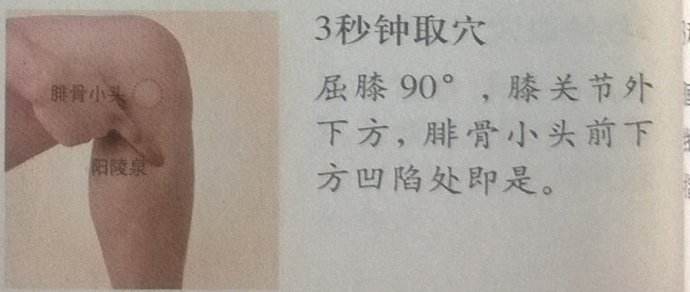 3秒钟取穴
屈膝90°，膝关节外
下方，腓骨小头前下
方凹陷处即是。
腓骨小头
阳陵泉